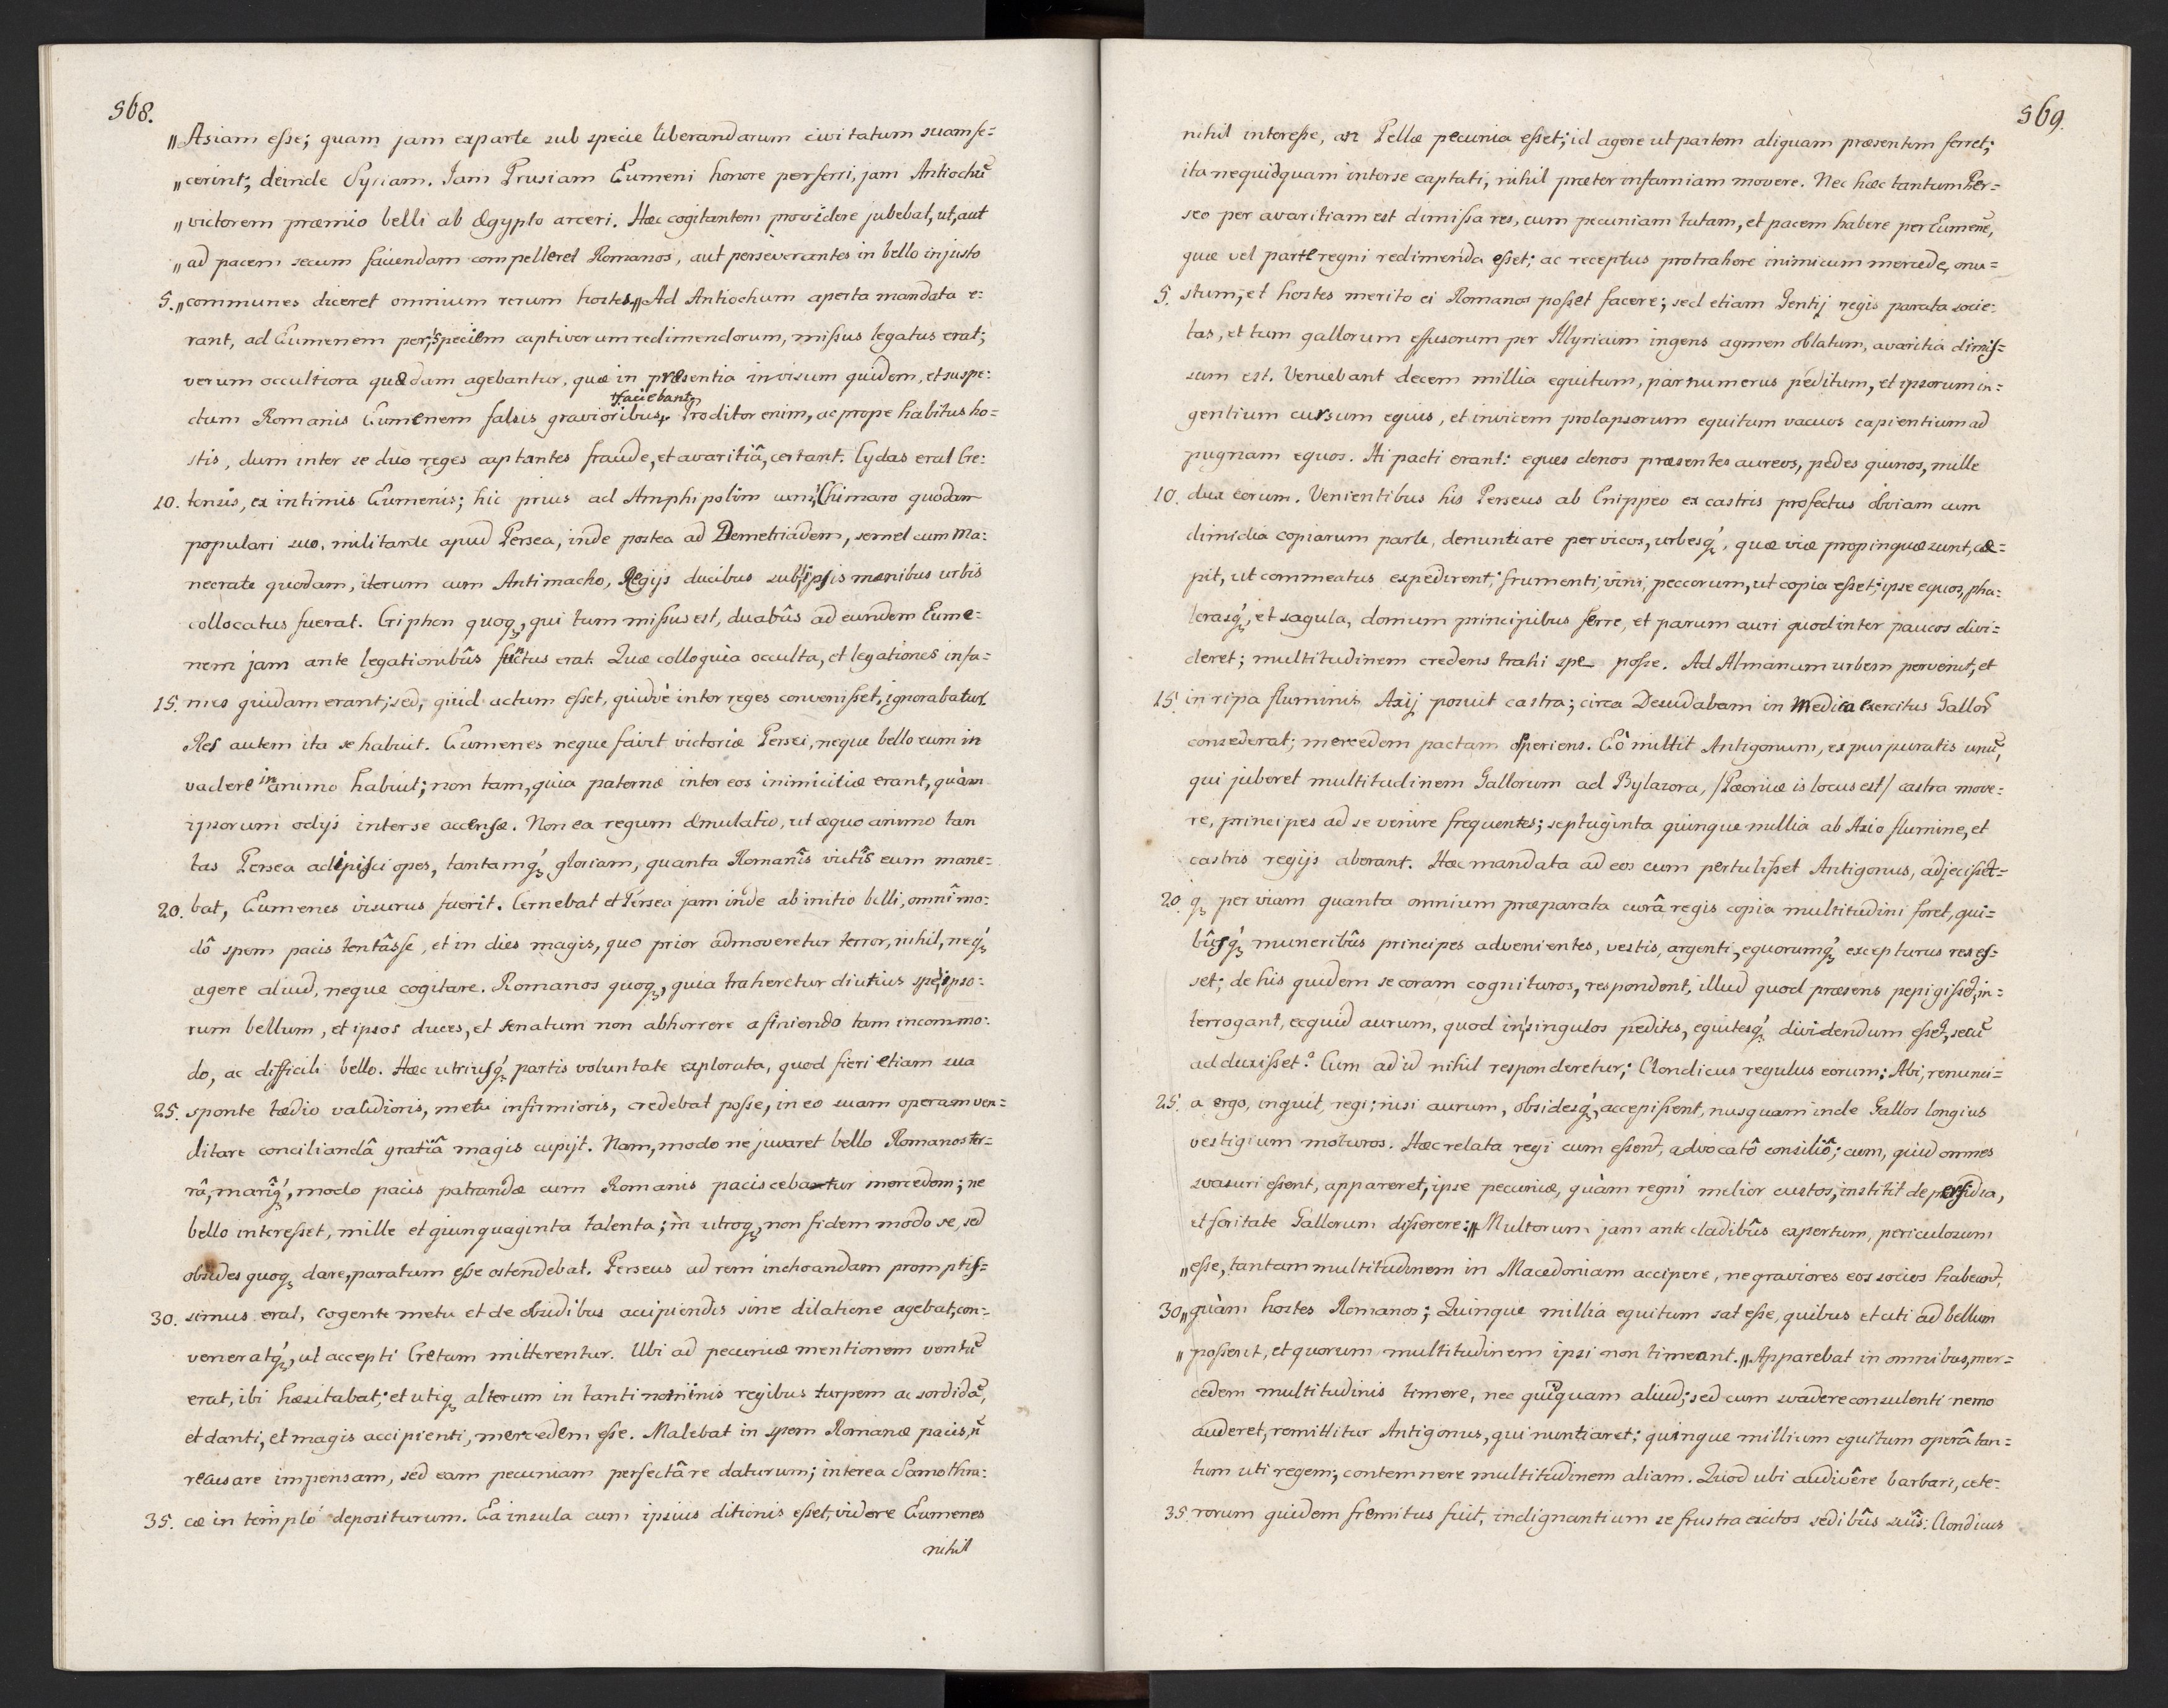 568.
„Asiam eſse; quam jam exparte sub specie liberandarum civitatum suam fe=
„cerint; deinde Syriam. Jam Prusiam Eumeni honore perferri, jam Antiochū
„victorem præmio belli ab Ægypto arceri. Hæc cogitantem providere jubebat, ut, aut
„ad pacem secum faciendam compelleret Romanos, aut perseverantes in bello injusto
5. „communes diceret omnium rerum hostes„ Ad Antiochum aperta mandata e=
rant, ad Eumenem per speciem captivorum redimendorum, miſsus legatus erat;
verum occultiora quædam agebantur, quæ in præsentia invisum quidem, et suspe=
faciebant
ctum Romanis Eumenem falsis gravioribus. Proditor enim, ac prope habitus ho=
stis, dum inter se duo reges captantes fraude, et avaritiâ, certant. Cydas erat Cre=
10. tensis, ex intimis Eumenis; hic prius ad Amphipolim cum Chimaro quodam
populari suo, militante apud Persea, inde postea ad Demetriadem, semel cum Ma=
necrate quodam, iterum cum Antimacho, Regijs ducibus sub ipsis mœnibus urbis
collocatus fuerat. Criphon quoq, qui tum miſsus est, duabûs ad eundem Eume=
nem jam ante legationibûs functus erat. Quæ colloquia occulta, et legationes infa=
15. mes quidam erant; sed, quid actum eſset, quidvè inter reges conveniſset, ignorabatur.
Res autem ita se habuit. Eumenes neque favit victoriæ Persei, neque bello eum in
vadere in animo habuit; non tam, quia paternæ inter eos inimicitiæ erant, quàm
ipsorum odijs inter se accensæ. Non ea regum æmulatio, ut æquo animo tan
tas Persea adipisci opes, tantamq́ gloriam, quanta Romanîs victîs eum mane=
20. bat, Eumenes visurus fuerit. Cernebat et Persea jam inde ab initio belli, omnî mo=
dô spem pacis tentâsse, et in dies magis, quo prior admoveretur terror, nihil, neq́
agere aliud, neque cogitare. Romanos quoq, quia traheretur diutius spe ipso=
rum bellum, et ipsos duces, et senatum non abhorrere a finiendo tam incommo=
do, ac difficili bello. Hac utriusq́ partis voluntate explorata, quod fieri etiam sua
25. sponte tædio validioris, metu infirmioris, credebat poſse, in eo suam operam ven=
ditare conciliandâ gratiâ magis cupijt. Nam, modo ne juvaret bello Romanos ter=
râ, mariq́, modo pacis patrandæ cum Romanis paciscebatur mercedem; ne
bello intereſset, mille et quinquaginta talenta; in utroq, non fidem modo se, sed
obsides quoq dare, paratum eſse ostendebat. Perseus ad rem inchoandam promptis=
30. simus erat, cogente metu et de obsidibus accipiendis sine dilatione agebat, con=
veneratq́, ut accepti Cretam mitterentur. Ubi ad pecuniæ mentionem ventū
erat, ibi hæsitabat; et utiq alterum in tanti nominis regibus turpem ac sordidā,
et danti, et magis accipienti, mercedem eſse. Malebat in spem Romanæ pacis, ñ
recusare impensam, sed eam pecuniam perfectâ re daturum; interea Samothra=
35. cæ in templo depositurum. Ea insula cum ipsius ditionis eſset, videre Eumenes
nihil
569.
nihil intereſse, an Pellæ pecunia eſset; id agere ut partem aliquam præsentem ferret;
ita nequidquam inter se captati, nihil præter infamiam movere. Nec hæc tantum Per=
seo per avaritiam est dimiſsa res, cum pecuniam tutam, et pacem habere per Eumenē,
quæ vel parte regni redimenda eſset; ac receptus protrahere inimicum mercede, onu=
5. stum, et hostes merito ei Romanos poſset facere; sed etiam Gentij regis parata socie=
tas, et tum gallorum effusorum per Illyricum ingens agmen oblatum, avaritia dimis=
sum est. Veniebant decem millia equitum, par numerus peditum, et ipsorum in=
gentium cursum equis, et invicem prolapsorum equitum vacuos capientium ad
pugnam equos. Hi pacti erant: eques denos præsentes aureos, pedes quinos, mille
10. dux eorum. Venientibus his Perseus ab Enippeo ex castris profectus obviam cum
dimidia copiarum parte, denuntiare per vicos, urbesq́, quæ viæ propinquæ sunt, cæ=
pit, ut commeatus expedirent; frumenti, vini, peccorum, ut copia eſset; ipse equos, pha=
lerasq́, et sagula, domum principibus ferre, et parum auri quod inter paucos divi=
deret; multitudinem credens trahi spe poſse. Ad Almanam urbem pervenit, et
15. in ripa fluminis Axij posuit castra; circa Desudabam in Medica exercitus Gallor̄
consederat; mercedem pactam operiens. Eô mittit Antigonum, ex purpuratis unū,
qui juberet multitudinem Gallorum ad Bylazora, /Pæoniæ is locus est/ castra move=
re, principes ad se venire frequentes; septuginta quinque millia ab Axio flumine, et
castris regijs aberant. Hæc mandata ad eos cum pertuliſset Antigonus, adjeciſset=
20. q per viam quanta omnium præparata curâ regis copia multitudini foret, qui=
bûsq́ muneribûs principes advenientes, vestis, argenti, equorumq́ excepturus rex es=
set; de his quidem se coram cognituros, respondent, illud quod præsens pepigiſset, in=
terrogant, ecquid aurum, quod in singulos pedites, equitesq́ dividendum eſset, secū
adduxiſset? Cum ad id nihil responderetur; Clondicus regulus eorum: Abi, renunci=
25. a ergo, inquit, regi; nisi aurum, obsidesq́, accepiſsent, nusquam inde Gallos longius
vestigium moturos. Hæc relata regi cum eſsent, advocatô consiliô; cum, quid omnes
svasuri eſsent, appareret, ipse pecuniæ, quàm regni melior custos, institit de perfidia,
et feritate Gallorum diſserere: „Multorum jam ante cladibûs expertum, periculosum
„eſse, tantam multitudinem in Macedoniam accipere, ne graviores eos socios habeant,
30. „quàm hostes Romanos; Quinque millia equitum sat eſse, quibus et uti ad bellum
„poſsent, et quorum multitudinem ipsi non timeant.„ Apparebat in omnibus, mer=
cedem multitudinis timere, nec quiquam aliud; sed cum svadere consulenti nemo
auderet, remittitur Antigonus, qui nuntiaret; quinque millium equitum operâ tan=
tum uti regem, contemnere multitudinem aliam. Quod ubi audivêre barbari, cete=
35. rorum quidem fremitus fuit, indignantium se frustra excitos sedibûs suîs: Clondicus